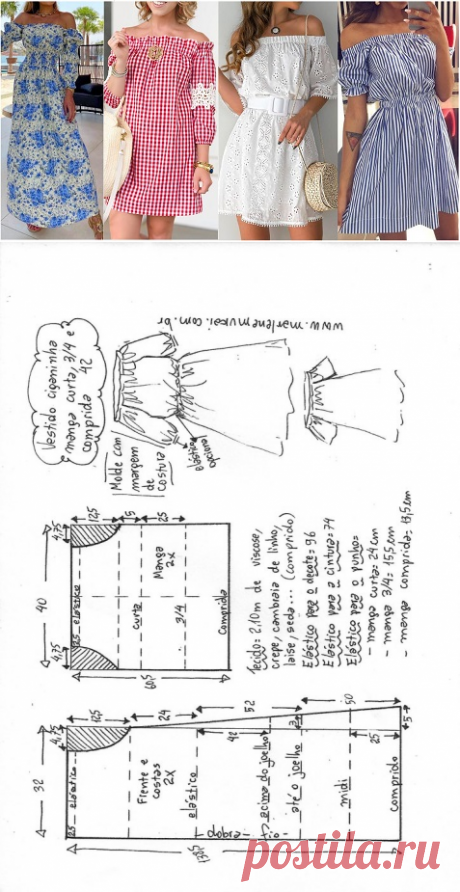 www.marlenemukai.com.br
Vestido ciganinha
manga curta, 3/4 e
comprida
42
Molde com
margem
de
costura
elástico
cintura
40
4,75
12,5
5
25
2,5 elástico
curta
Manga
2x
3/4
Comprida
4,75
60,5
Tecido = 2,10m de viscose,
crepe, cambraia de linho,
laise, seda... (comprido)
Elástico para o decote = 96
Elástico para a cintura = 74
Elástico para o punho =
- manga curta = 24cm
- manga 3/4 = 15,5cm
- manga comprida = 13,5cm
32
4,75
12,5
24
52
50
42
3
25
5
2,5 elástico
Frente e
costas
2x
elástico
acima do joelho
até o joelho
midi
comprido
dobra
fio
138,5
postila.ru